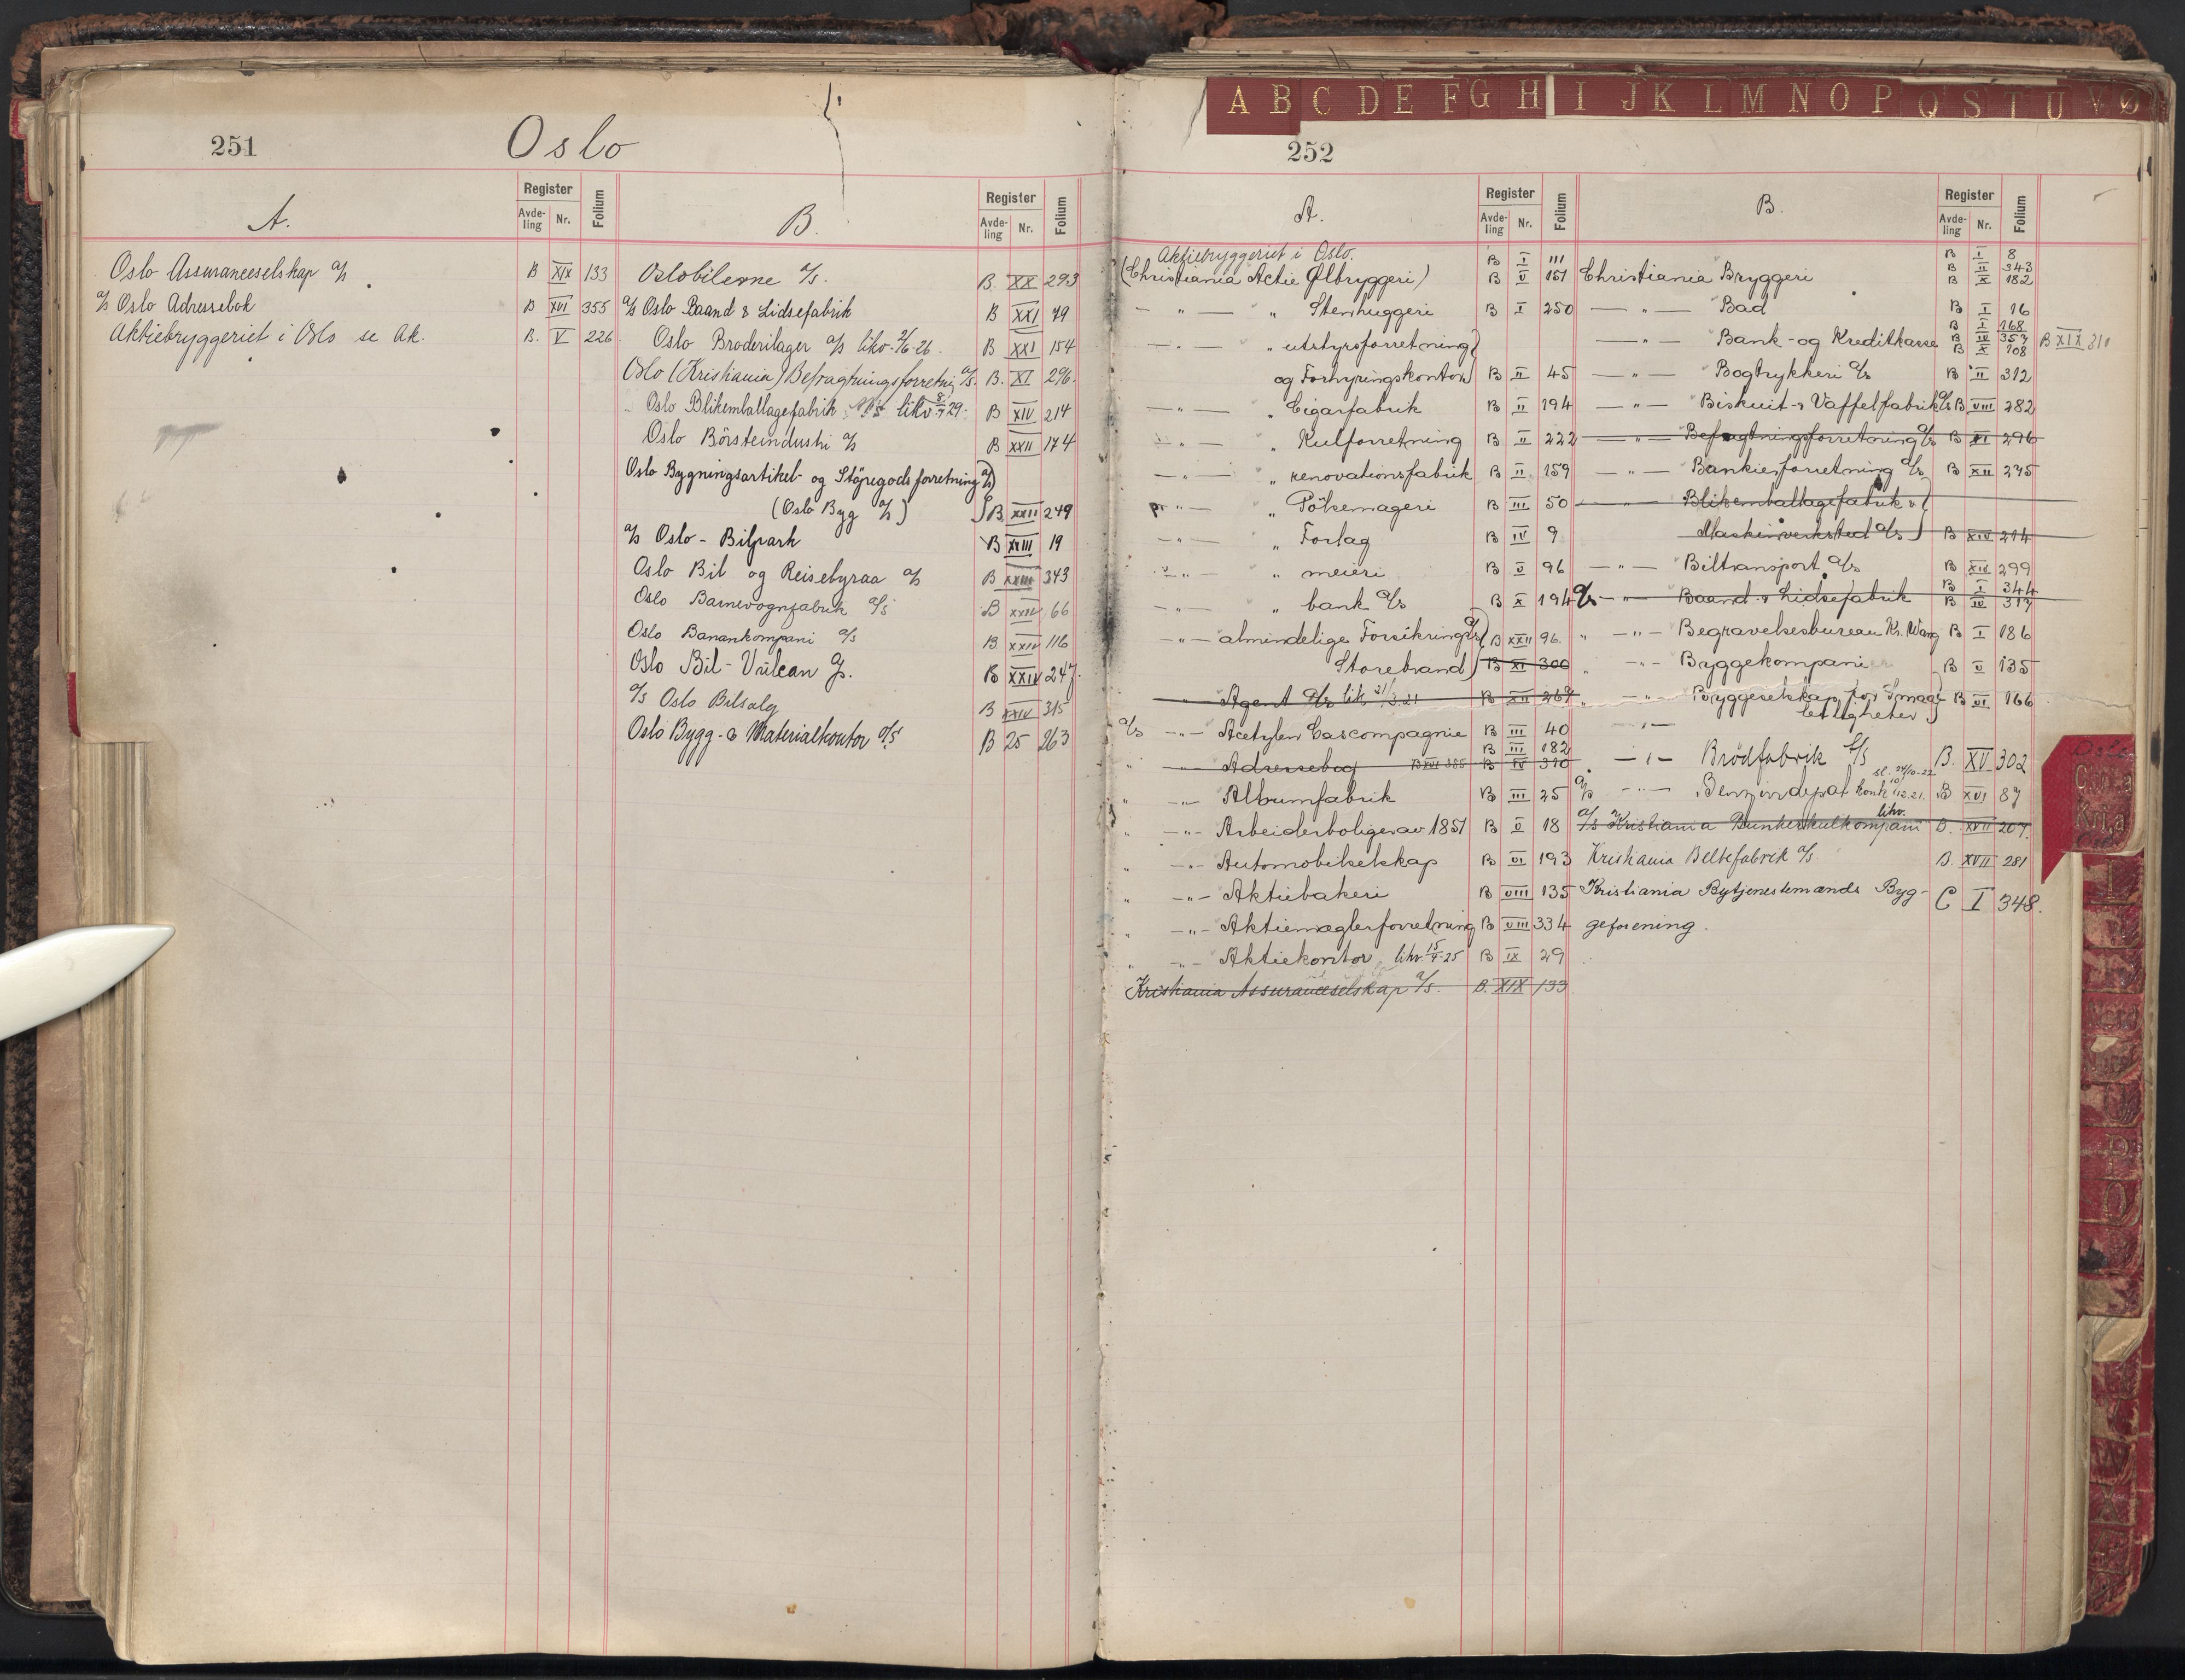 251
Oslo
A.
Register
Avde-
ling
Nr.
Folium
B.
Register
Avde-
ling
Nr.
Folium
Oslo Assuranceselskap a/s B XIX 133
a/s Oslo Adressebok B XVI 355
Aktiebryggeriet i Oslo se Ak. B. V 226
Oslobilerne a/s. B. XX 293
a/s Oslo Baand & Lidsefabrik B XXI 79
Oslo Broderilager a/s likv. 2/6-26. B XXI 154
Oslo (Kristiania) Befragtningsforretnig a/s. B. XI 296.
Oslo Blikemballagefabrik A/s likv 8/7 29. B XIV 214
Oslo Börsteindustri a/s B XXII 174
Oslo Bygningsartikel- og Stöpegodsforretning a/s)
(Oslo Byg a/s) B. XXII 249
a/s Oslo - Bilpark B XXIII 19
Oslo Bil og Reisebyraa a/s B XXIII 343
Oslo Barnevognfabrik a/s B XXIV 66
Oslo Banankompani a/s B. XXIV 116
Oslo Bil-Vulcan a/s. B XXIV 247.
a/s Oslo Bilsalg B XXIV 315
Oslo Bygg- & Materialkontor a/s B 25 263
A B C D E F G H I J K L M N O P Q S T U V Ø
252
A.
Register
Avde-
ling
Nr.
Folium
B.
Register
Avde-
ling
Nr.
Folium
Aktiebryggeriet i Oslo. B I 111
(Christiania Actie Ølbryggeri) B V 151
— " — " Stenhuggeri B I 250
— " — " utstyrsforretning
og Forhyringskontor B II 45
— " — " Cigarfabrik B II 194
" — " Kulforretning B II 222
— " — " renovationsfabrik B II 159
" — " Pölsemageri B III 50
— " — " Forlag B IV 9
" — " meieri B V 96
— " — " bank a/s B X 194
— " — almindelige Forsikrings a/s B XXII 96.
Storebrand) B XI 300
" Agent a/s lik 21/3.21 B XII 267
a/s — " — Acetylen Gascompagnie B III 40
B III 182
" — Adressebog B XVI 355 B IV 310
" — " — Albumfabrik B III 25
" — " — Arbeiderboliger av 1851 B V 18
" — " — Automobilselskap B VI 193
" — " — Aktiebakeri B VIII 135
" — " — Aktiemæglerforretning B VIII 334
" — " — Aktiekontor likv. 15/4-25 B IX 29
Kristiania Assuranceselskap a/s. B. XIX 133
B I 8
B II 343
Christiania Bryggeri B X 182
— " — Bad B I 16
B I 168
— " — Bank - og Kreditkasse B IV 357 B XIX 310
B X 108
— " — Bogtrykkeri a/s B II 312
— " — Biskuit- & Vaffelfabrik a/s B VIII 282
— " — Befragtningsforretning a/s B XI 296
— " — Bankierforretning a/s B XII 235
— " — Blikemballagefabrik &
Maskinverksted a/s) B XIV 214
— " — Biltransport a/s B XIV 299
B I 344
a/s — " — Baand & Lidsefabrik B IV 317
" — " — Begravelsesbureau Kr. Wang B I 186
" — " — Byggekompani B V 135
" — " — Byggeselskap for Smaa-
leiligheter B VI 166
— " — Brödfabrik a/s B. XV 302
sl. 24/10-22
a/s — " — Benzindepot konk 10/12.21. B XVI 87
a/s Kristiania Bunkerskulkompani likv. B. XVII 207.
Kristiania Beltefabrik a/s B. XVII 281
Kristiania Bytjenestemænds Byg- C I 348.
geforening.
Oslo
Chr.a
Kr.a